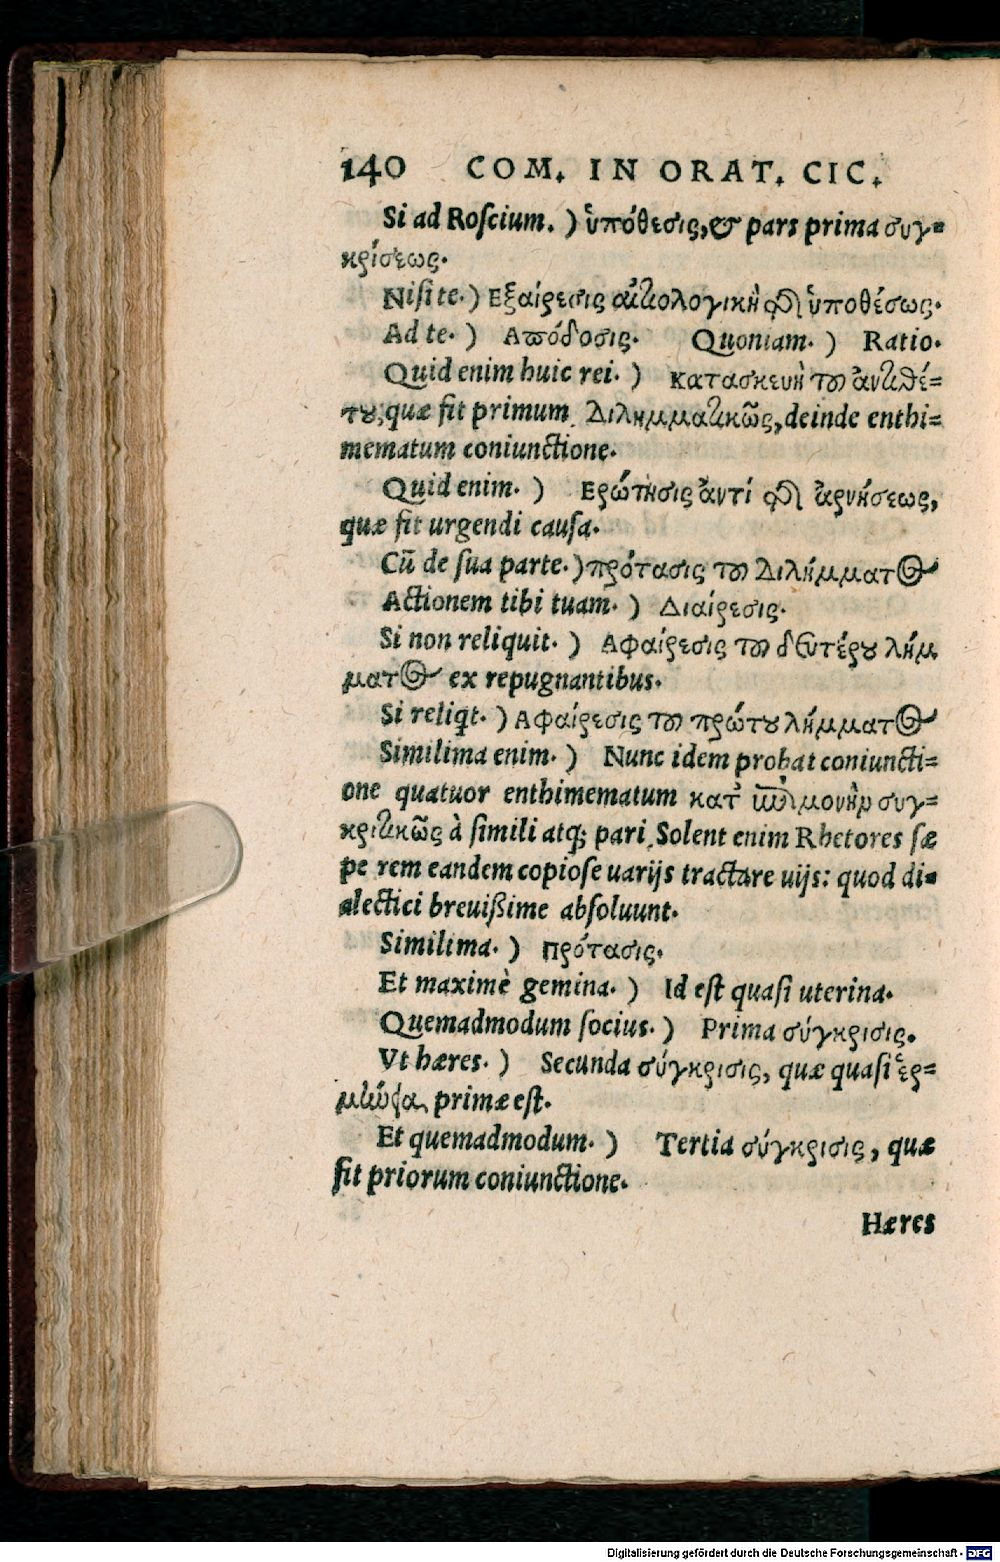 140 COM. IN ORAT. CIC.
Si ad Roſcium. ) ὑπόθεσις, & pars prima συγ=
κρίσεως.
Niſi te. ) Εξαίρεσις αἰτιολογικὴ τῆς ὑποθέσεως.
Ad te. ) Απόδοσις. Quoniam. ) Ratio.
Quid enim huic rei. ) κατασκευὴ τοῦ ἀντιθέ=
του, quæ fit primum Διλημματικῶς, deinde enthi=
mematum coniunctione.
Quid enim. ) Ερώτησις ἀντὶ τῆς ἀρνήσεως,
quæ fit urgendi cauſa.
Cū de ſua parte. ) πρότασις τοῦ Διλήμματος
Actionem tibi tuam. ) Διαίρεσις.
Si non reliquit. ) Αφαίρεσις τοῦ δευτέρου λήμ
ματος ex repugnantibus.
Si reliqt. ) Αφαίρεσις τοῦ πρώτου λήμματος
Similima enim. ) Nunc idem probat coniuncti=
one quatuor enthimematum κατ' ἐπιμονὴν συγ=
κριτικῶς à ſimili atq; pari. Solent enim Rhetores ſæ
pe rem eandem copioſe uarijs tractare uijs: quod di=
alectici breuißime abſoluunt.
Similima. ) πρότασις.
Et maximè gemina. ) Id eſt quaſi uterina.
Quemadmodum ſocius. ) Prima σύγκρισις.
Vt hæres. ) Secunda σύγκρισις, quæ quaſi ἑρ=
μηνεία primæ eſt.
Et quemadmodum. ) Tertia σύγκρισις, quæ
fit priorum coniunctione.
Hæres
Digitalisierung gefördert durch die Deutsche Forschungsgemeinschaft - DFG